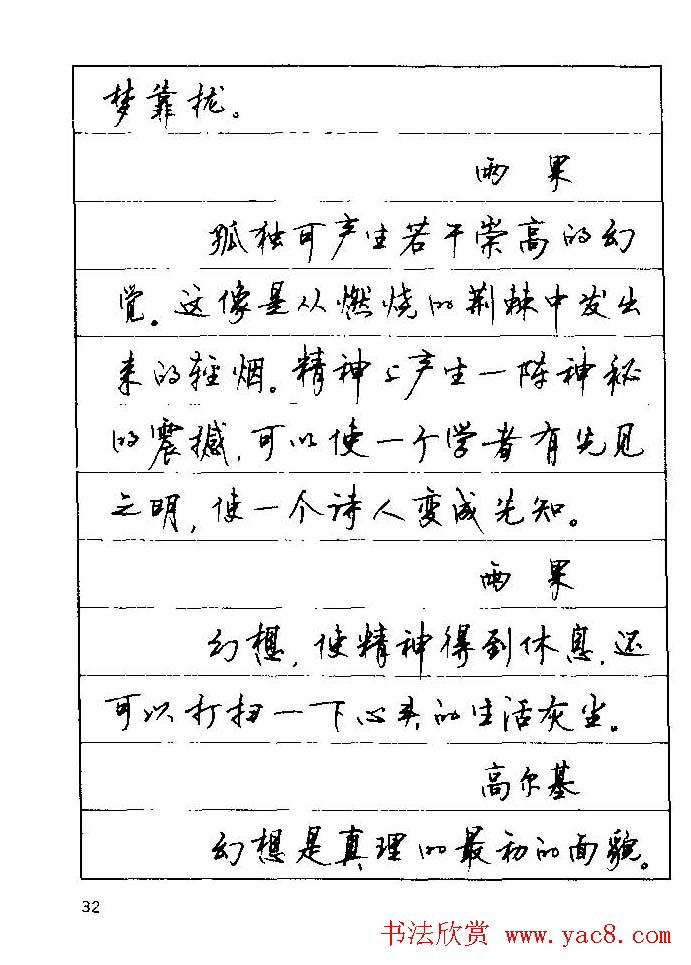 梦靠拢。
雨果
孤独可产生若干崇高的幻
觉。这像是从燃烧的荆棘中发出
来的轻烟。精神上产生一阵神秘
的震撼,可以使一个学者有先见
之明,使一个诗人变成先知。
雨果
幻想,使精神得到休息,还
可以打扫一下心头的生活灰尘。
高尔基
幻想是真理的最初的面貌。
32
书法欣赏 www.yac8.com